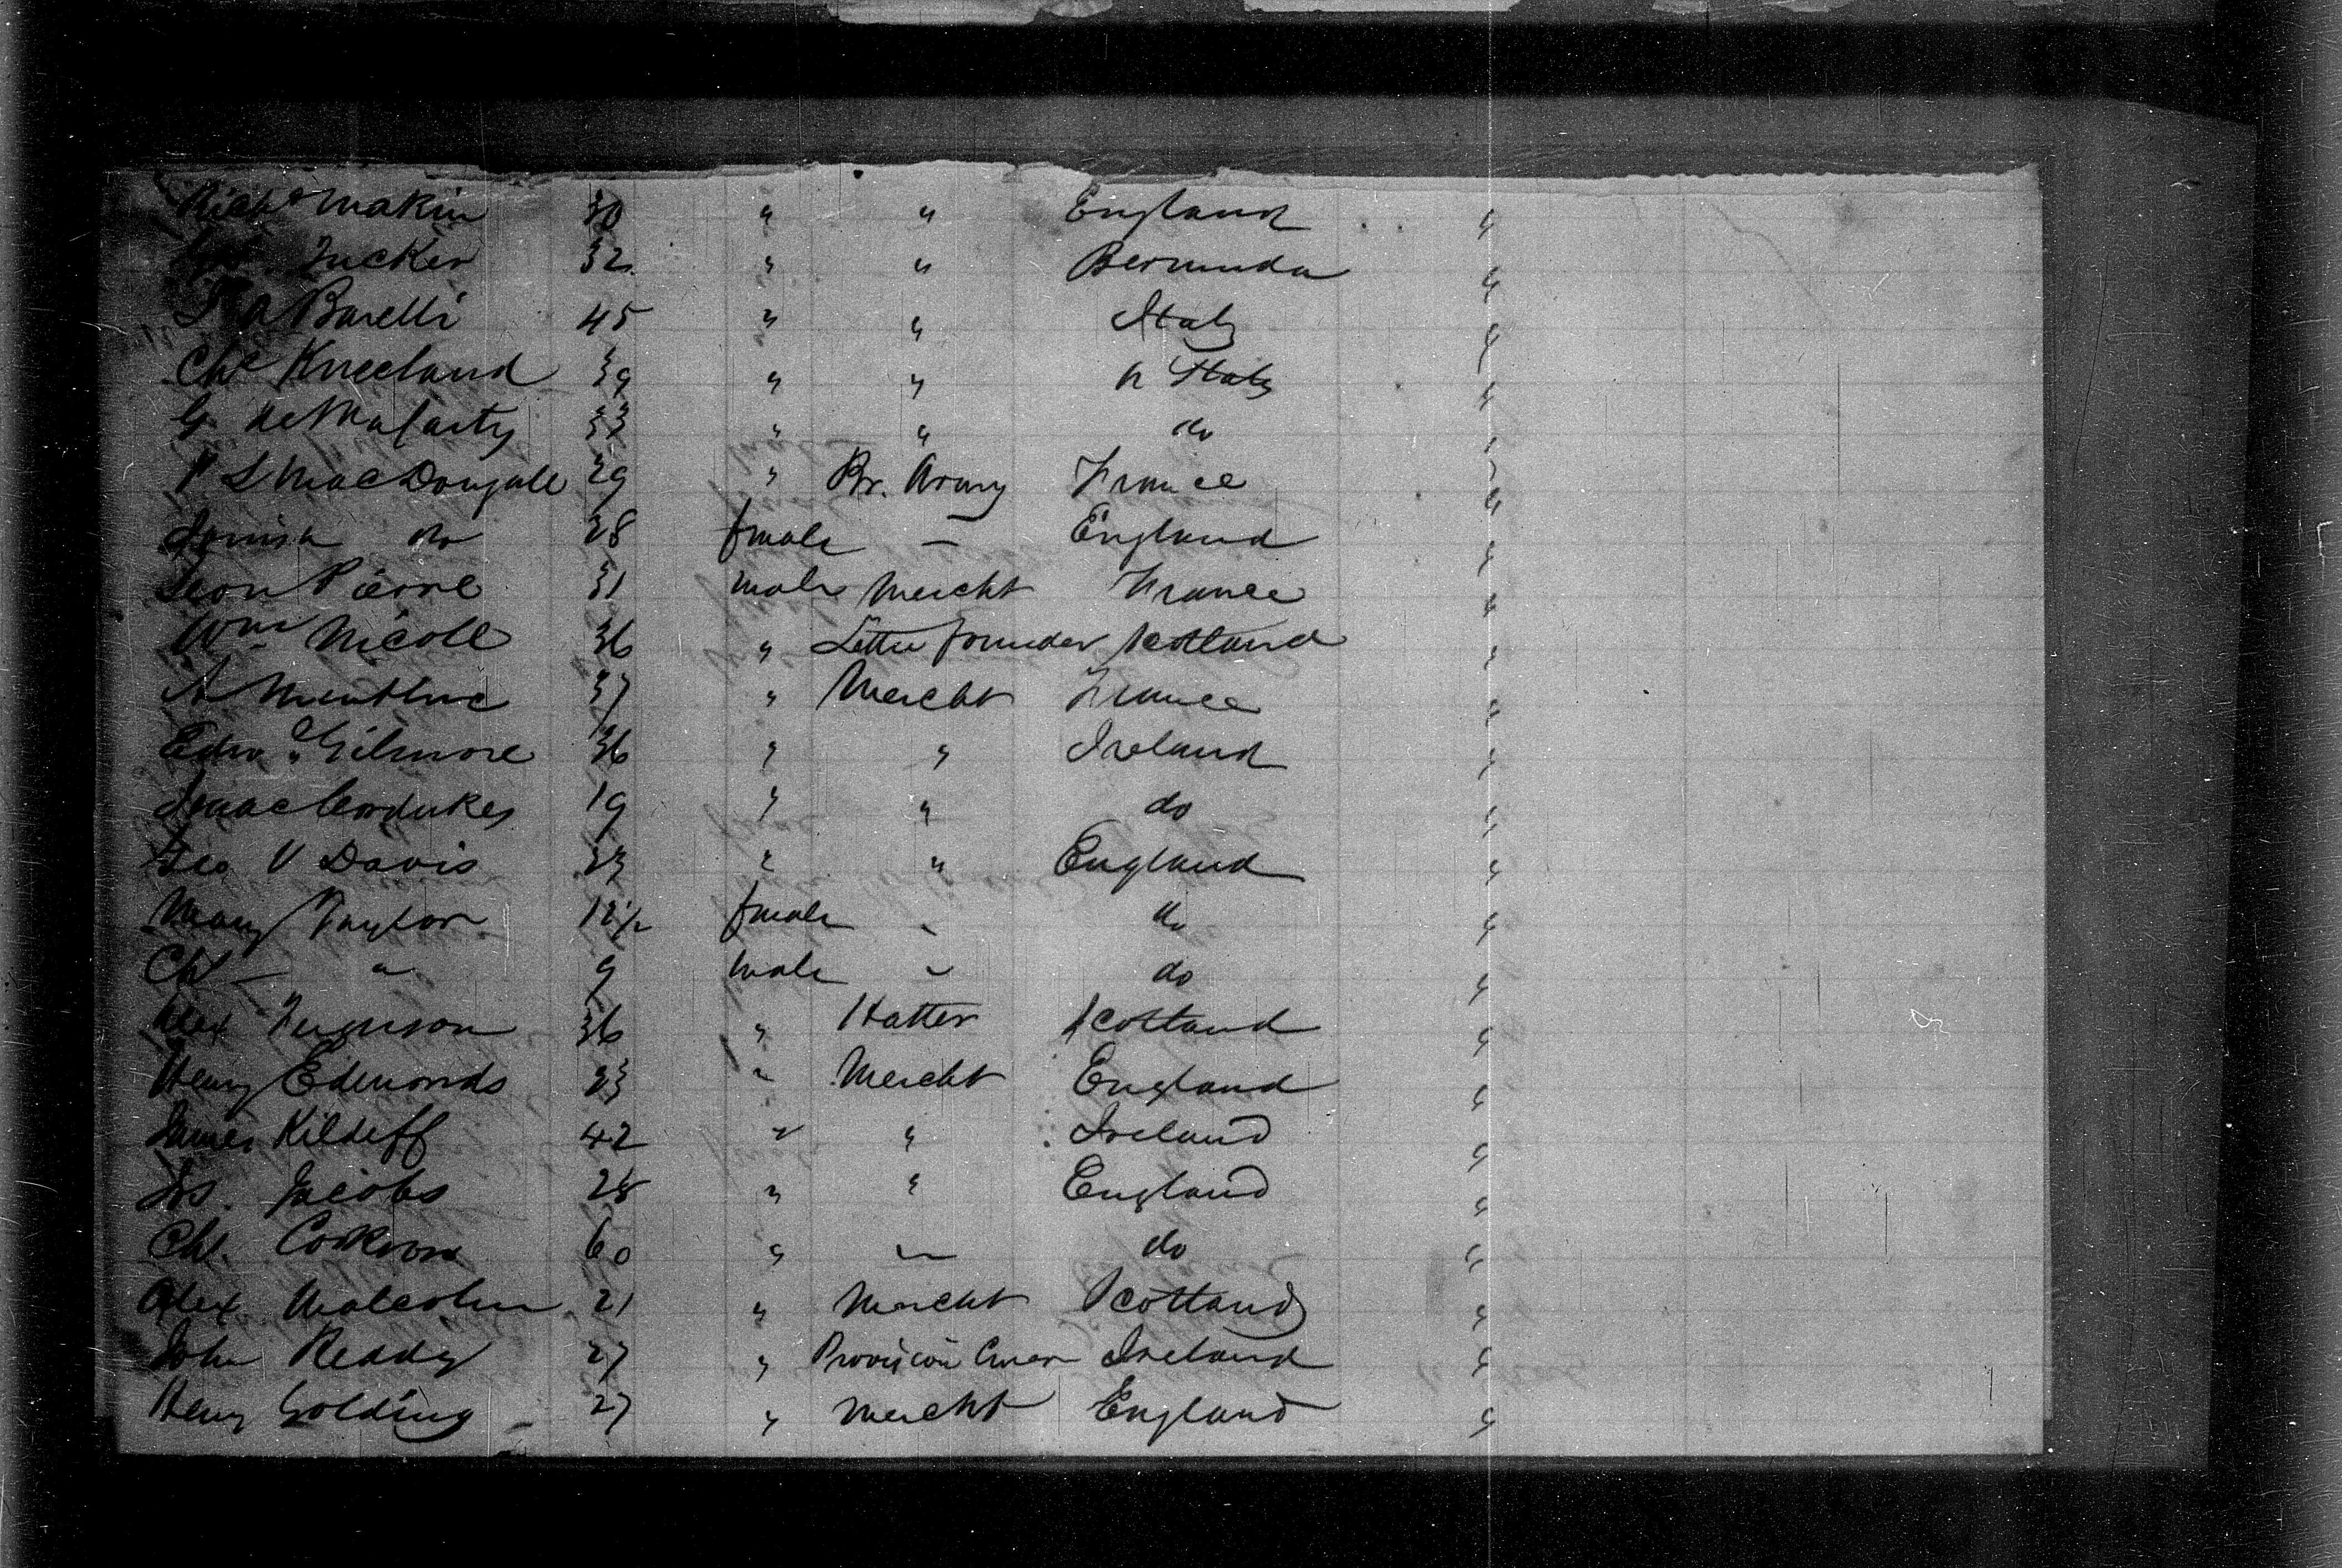 Rich^d Makin 30 " " England "
Tucker 32 " " Bermuda "
Barelli 45 " " Italy "
Ch^s Kneeland 39 " " "
G 33 " " do "
P L MacDougall 29 " Br. Army France "
Louisa do 28 fmale — England "
Leon Pierre 31 male Mercht France "
W^m Nicoll 36 " Letter founder Scotland "
A 37 " Mercht France "
Edw^d Gilmore 36 " " Ireland "
Isaac Cordukes 19 " " do "
Geo V Davis 23 " " England "
Mary Taylor 12½ fmale " do "
Ch^s " 9 male " do "
Alex Ferguson 36 " Hatter Scotland "
Henry Edmonds 23 " Mercht England "
James Kilduff 42 " " Ireland "
Jacobs 28 " " England "
Ch^s. 60 " — do "
Alex Malcolm 21 " Mercht Scotland "
John Reddy 27 " Provision Ireland "
Henry Golding 27 " Mercht England "